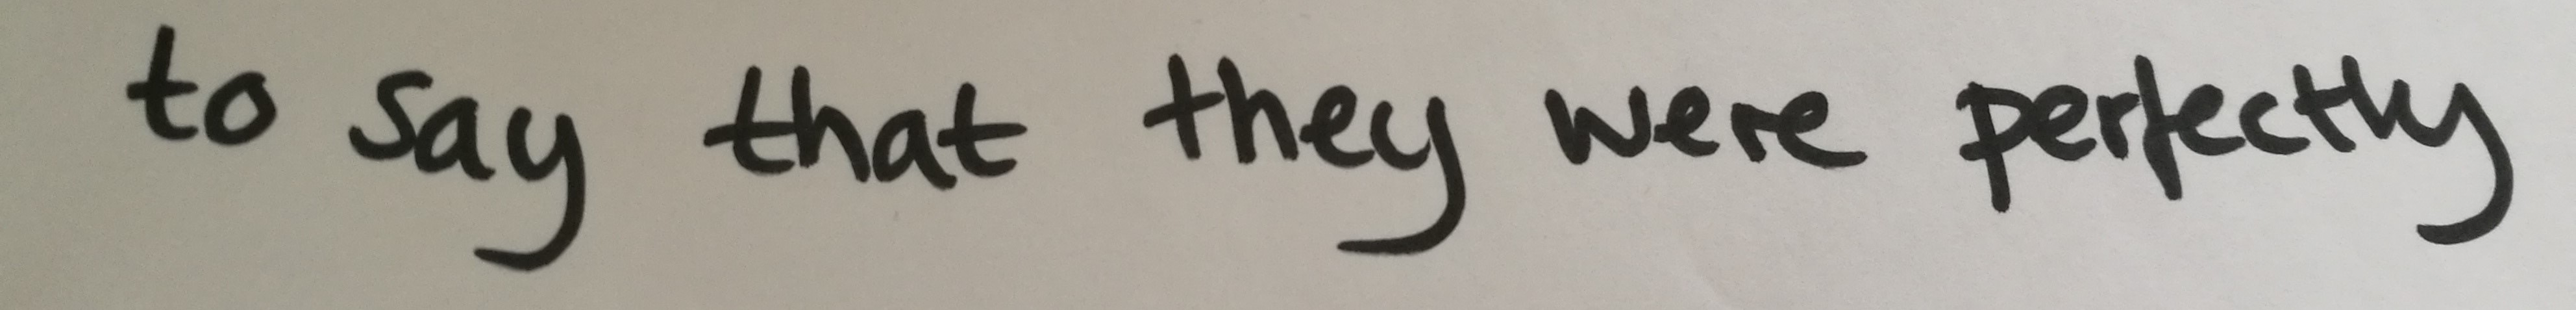 to say that they were perfectly